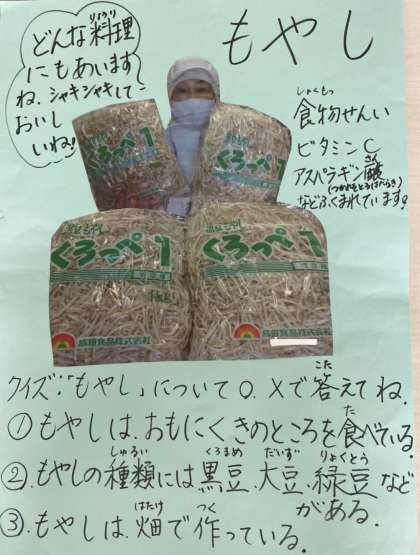 もやし
どんな料理
りょうり
にもあいます
ね、シャキシャキして
おいし
いね!
しょくもつ
食物せんい
ビタミンC
さん
アスパラギン酸
(つかれをとるはたらき)
などふくまれています。
くろっぺ1
くろっぺ1
黒豆もやし
くろっぺ1
1kg
成田食品株式会社
黒豆もやし
くろっぺ1
成田食品株式会社
クイズ:「もやし」について○、×で答えてね。
こた
①もやしは、おもにくきのところを食べている。
た
②、もやしの種類には黒豆、大豆、緑豆など
しゅるい くろまめ だいず りょくとう
がある。
③、もやしは、畑で作っている。
はたけ つく